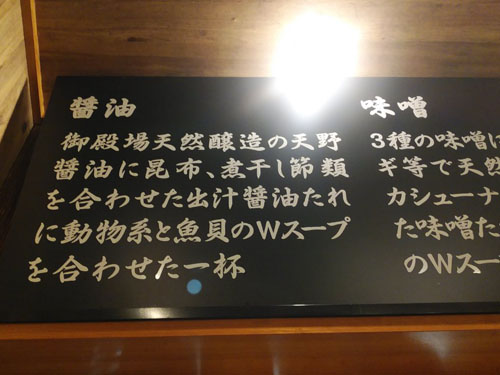 醤油
御殿場天然醸造の天野
醤油に昆布、煮干し節類
を合わせた出汁醤油たれ
に動物系と魚貝のWスープ
を合わせた一杯
味噌
3種の味噌に
ギ等で天然
カシューナ
た味噌た
のWスー